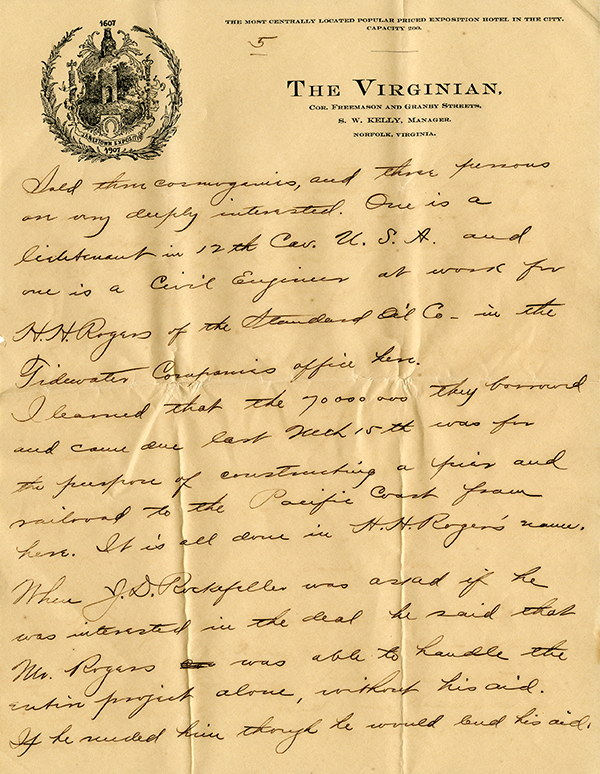 THE MOST CENTRALLY LOCATED POPULAR PRICED EXPOSITION HOTEL IN THE CITY.
CAPACITY 200.
5
1607
JAMESTOWN EXPOSITION
1907
THE VIRGINIAN,
COR. FREEMASON AND GRANBY STREETS,
S. W. KELLY, MANAGER.
NORFOLK, VIRGINIA.
Sold three cosmogenies, and three persons
are very deeply interested. One is a
lieutenant in 12th Cav. U. S. A. and
one is a Civil Engineer at work for
H.H. Rogers of the Standard Oil Co - in the
Tidewater Companies office here.
I learned that the 70000000 they borrowed
and came due last Mch 15th was for
the purpose of constructing a pier and
railroad to the Pacific Coast from
here. It is all done in H.H. Rogers's name.
When J.D. Rockefeller was asked if he
was interested in the deal he said that
Mr. Rogers was able to handle the
entire project alone, without his aid.
If he needed him though he would lend his aid.